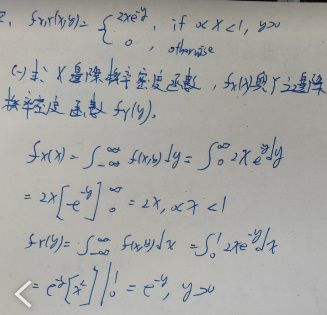 f_{X,Y}(x,y)= { 2xe^{-y}, if 0<x<1, y>0
0, otherwise
(一) 求 X 邊際機率密度函數, f_X(x) 與 Y 之邊際
機率密度函數 f_Y(y).
f_X(x) = ∫_{-∞}^{∞} f(x,y) dy = ∫_0^∞ 2x e^{-y} dy
= 2x [e^{-y}]_0^∞ = 2x, 0<x<1
f_Y(y) = ∫_{-∞}^{∞} f(x,y) dx = ∫_0^1 2xe^{-y} dx
= e^{-y} [x^2] |_0^1 = e^{-y}, y>0